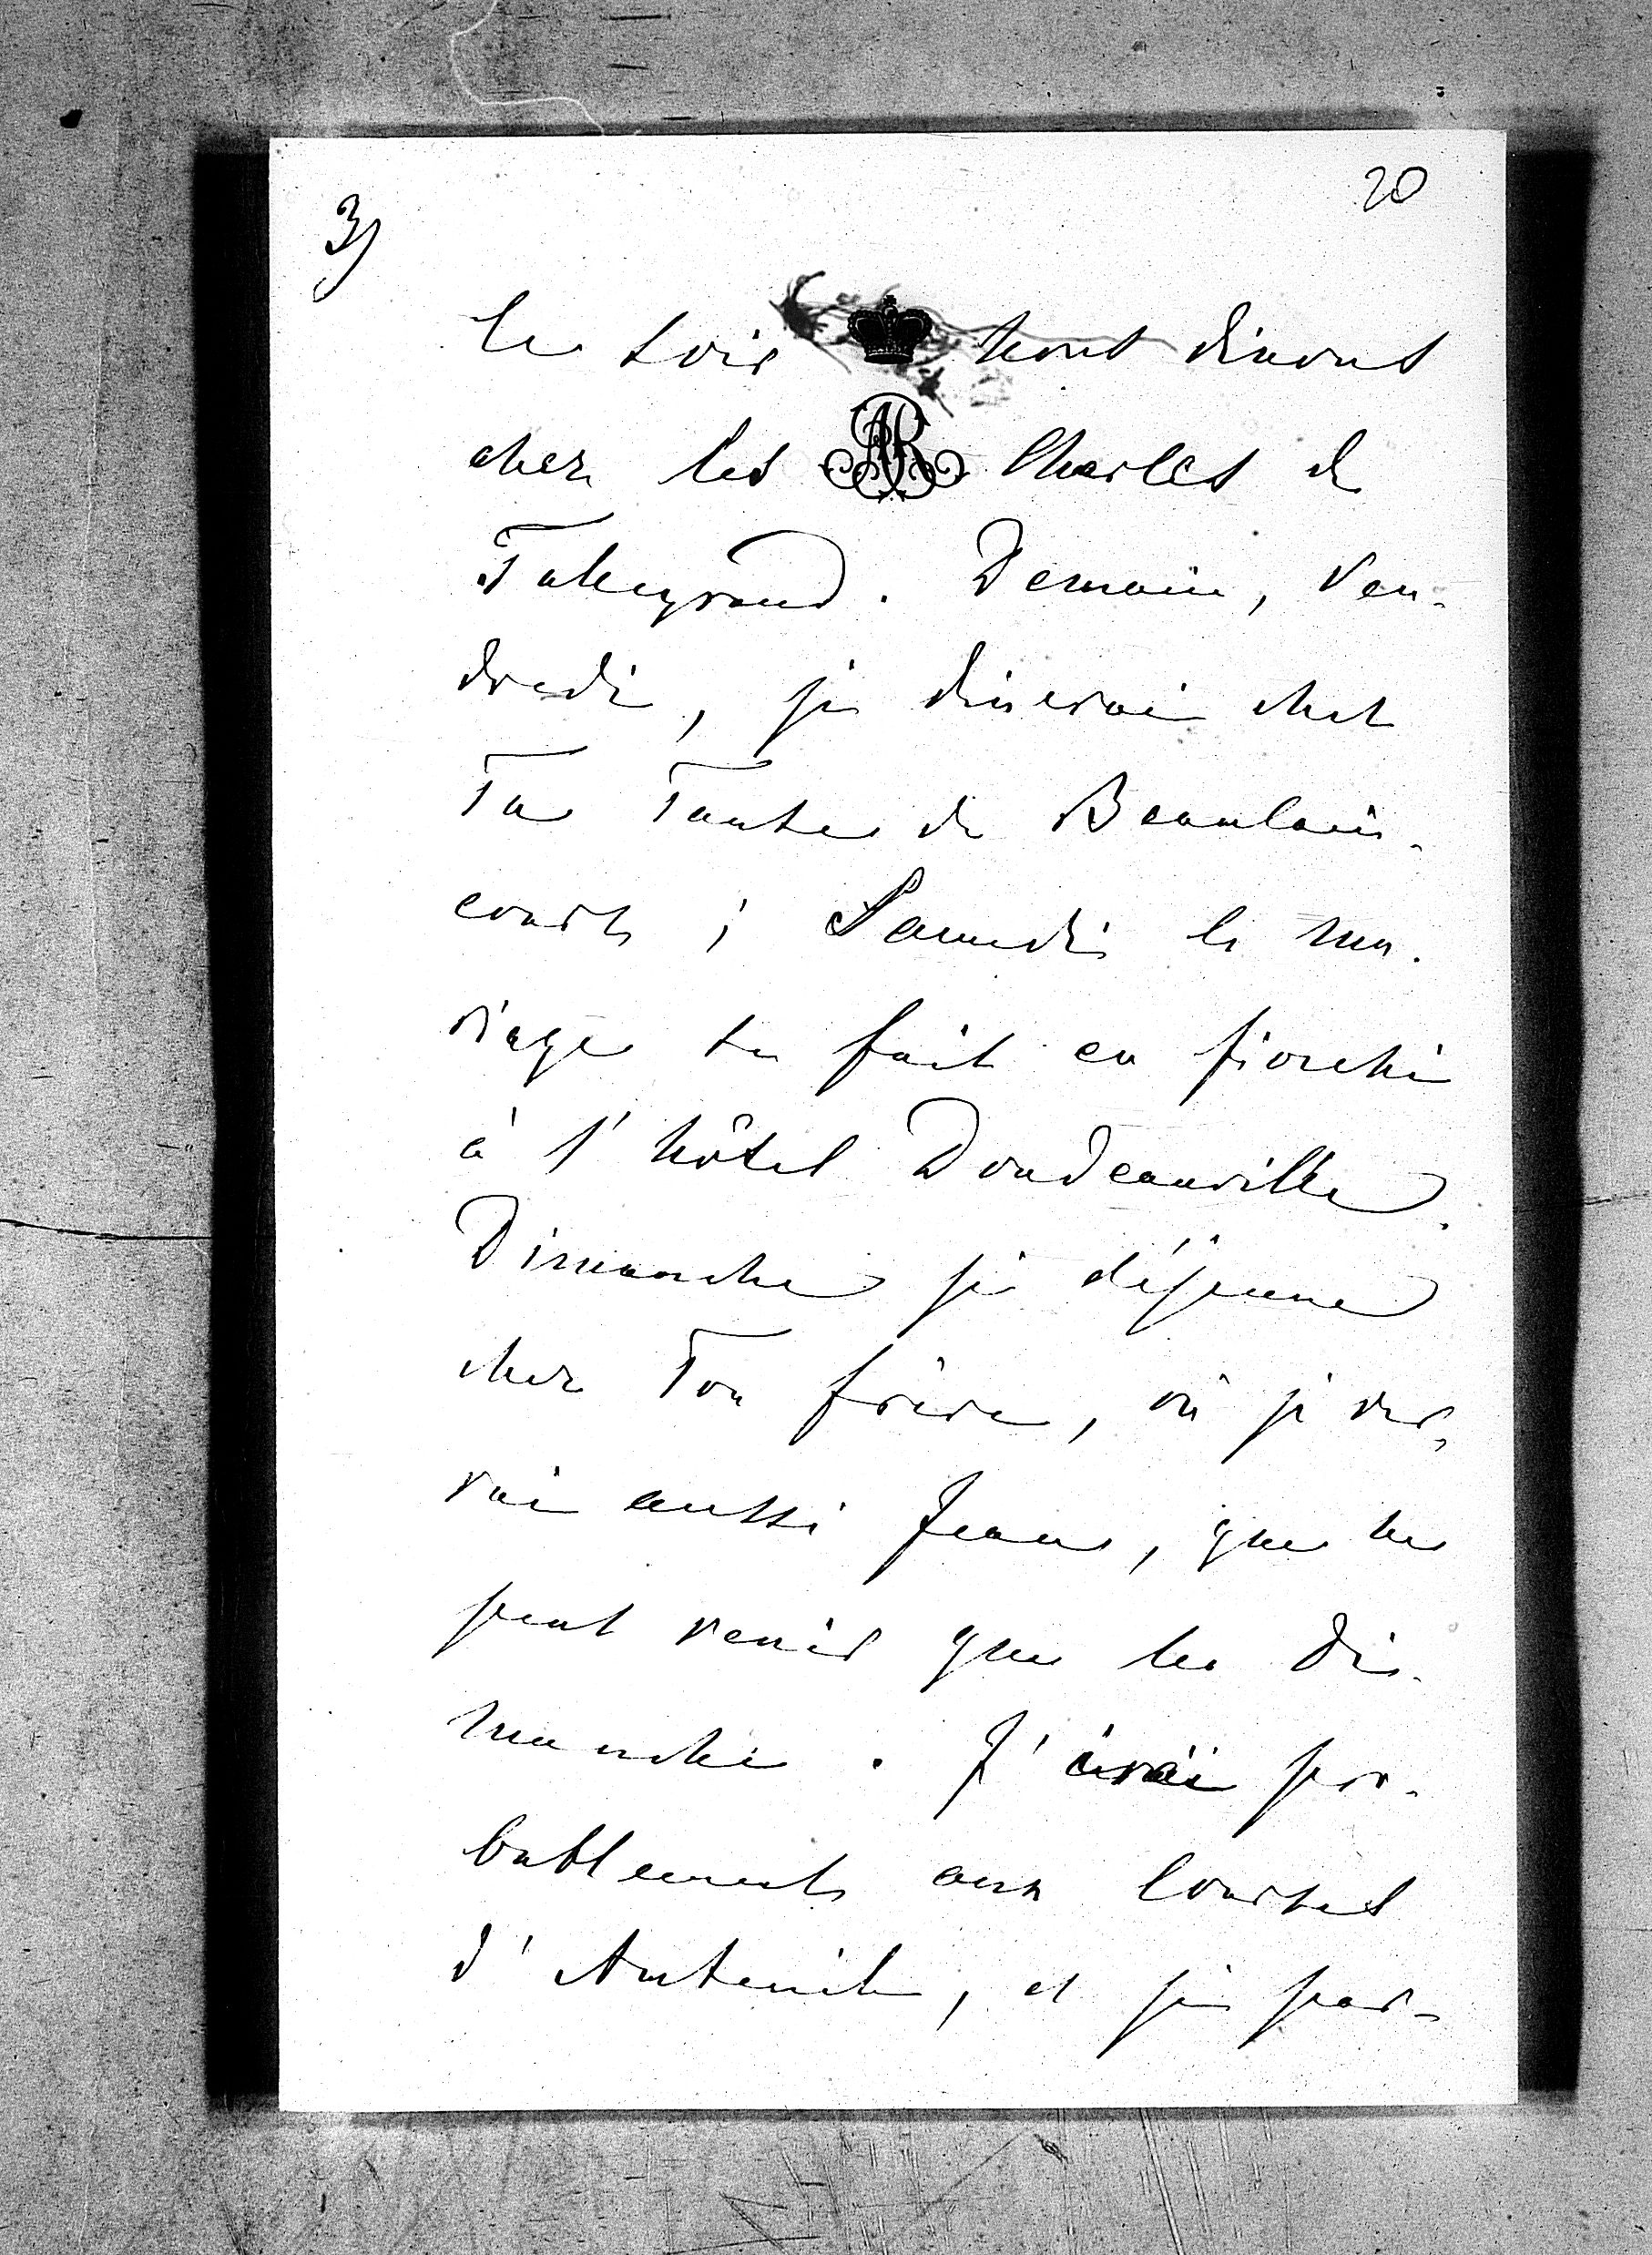 20
3)
Ce soir nous dinons
chez les AR Charles de
Talleyrand. Demain, Ven-
dredi, je dinerai chez
Ta Tante de Beaulain-
court ; Samedi le ma-
riage se fait en fiocchi
à l'hôtel Doudeauville.
Dimanche je déjeune
chez Ton frère, où je ver-
rai aussi Jean, que ne
peut venir que le Di-
manche. J'irai pro-
bablement aux Courses
d'Auteuil, et je par-